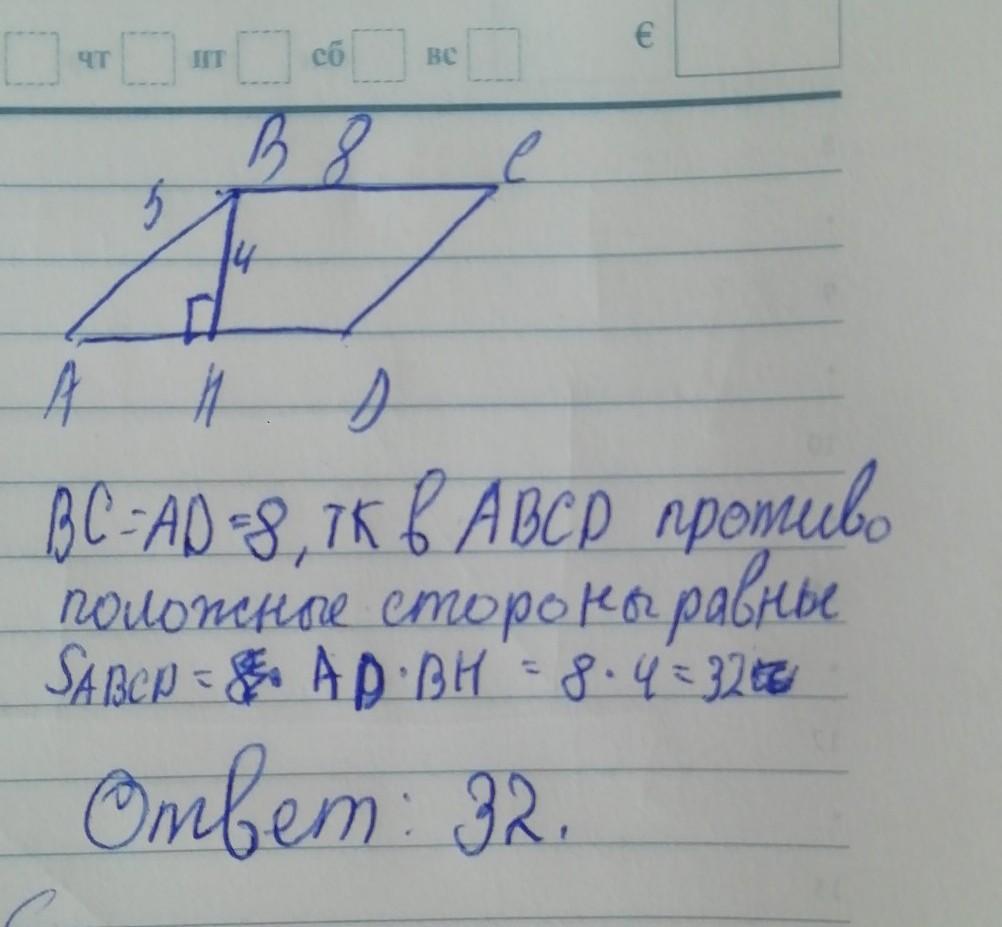 чт пт сб вс €
B 8 C
5
4
A H D
BC=AD=8, тк в ABCD противо
положные стороны равны
SABCD = AD·BH = 8·4=32
Ответ: 32.